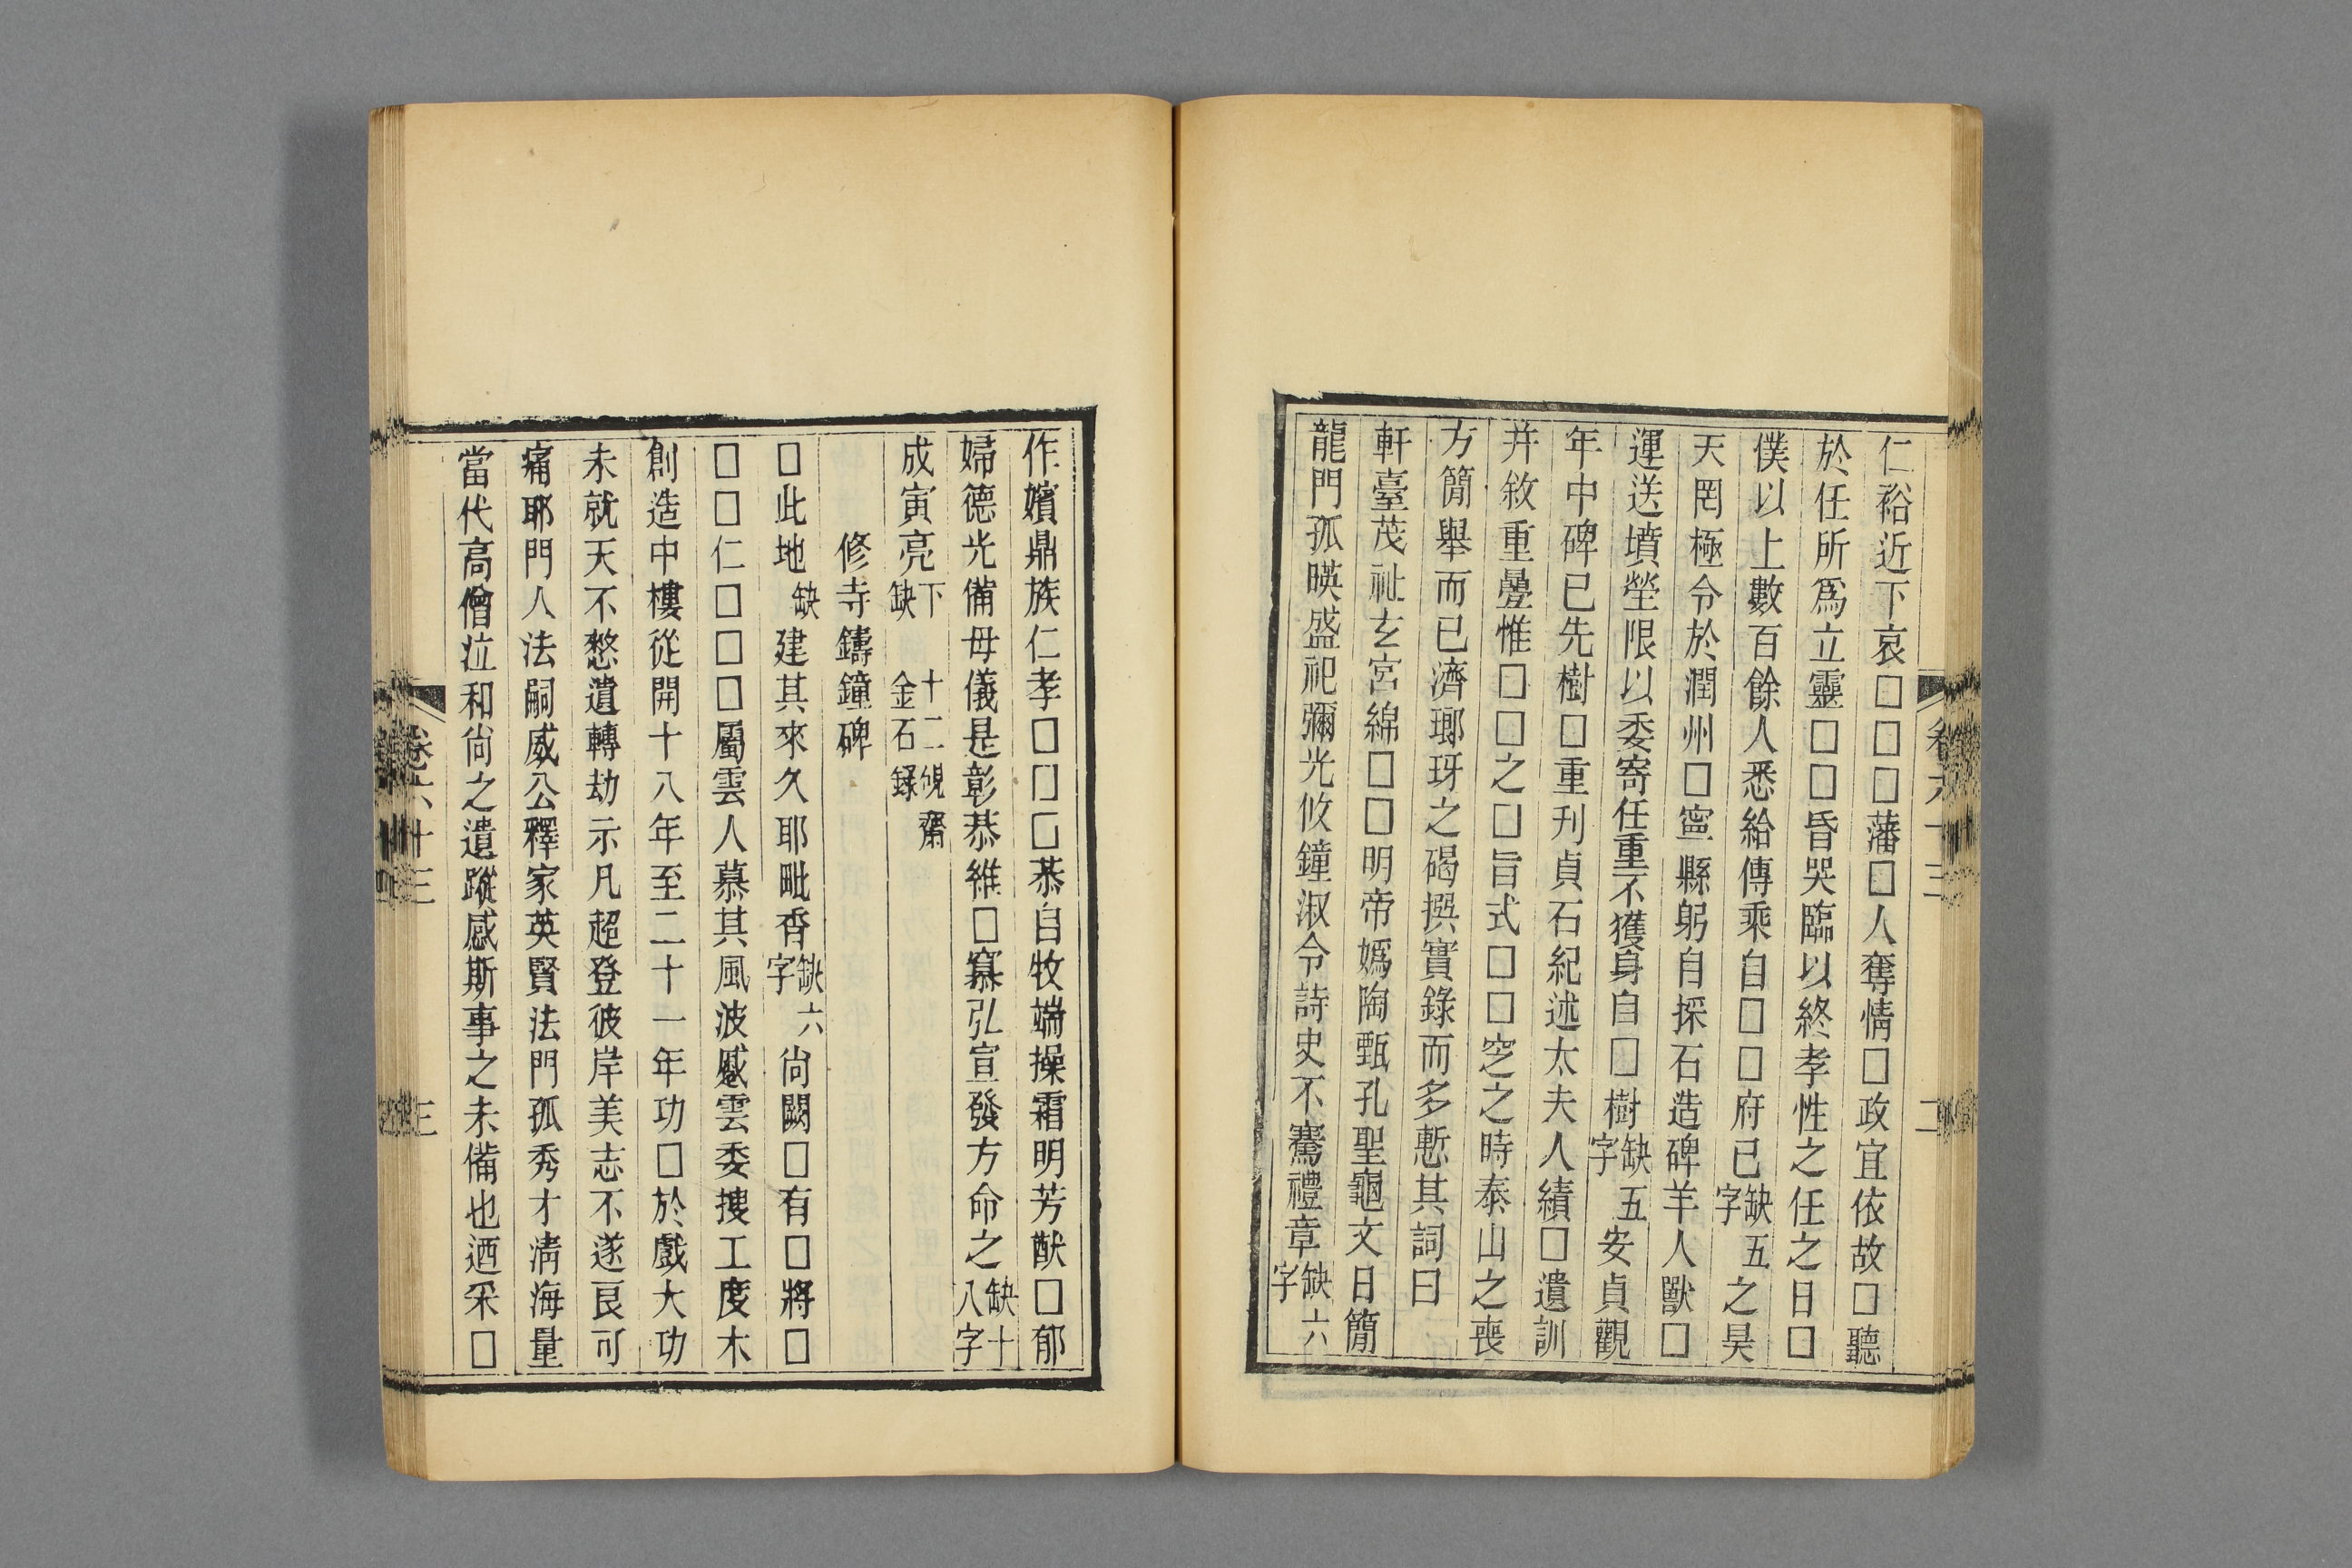 仁裕近下哀□□□藩□人奪情□政宜依故□聽
於任所爲立靈□□昏哭臨以終孝性之任之日□
僕以上數百餘人悉給傳乘自□□府已缺五字之昊
天罔極令於潤州□寧縣躬自採石造碑羊人獸□
運送墳塋限以委寄任重不獲身自□樹缺五字安貞觀
年中碑已先樹□重刋貞石紀述太夫人績□遺訓
并敘重疊惟□□之□旨式□□窆之時泰山之喪
方簡舉而已濟瑯玡之碣撰實錄而多慙其詞曰
軒臺茂祉玄宮綿□□明帝嬀陶甄孔聖龜文日簡
龍門孤暎盛祀彌光攸鐘淑令詩史不騫禮章缺六字
作嬪鼎族仁孝□□□恭自牧端操霜明芳猷□郁
婦德光備母儀是彰恭維□寡弘宣發方命之缺十八字
成寅亮下缺 十二硯齋金石錄
修寺鑄鐘碑
□此地缺建其來久耶毗香缺六字尙闕□有□將□
□□仁□□□屬雲人慕其風波慼雲委搜工度木
創造中樓從開十八年至二十一年功□於戲大功
未就天不憖遺轉劫示凡超登彼岸美志不遂良可
痛耶門人法嗣威公釋家英賢法門孤秀才淸海量
當代高僧泣和尙之遺蹤感斯事之未備也迺采□
卷六十三
三
二